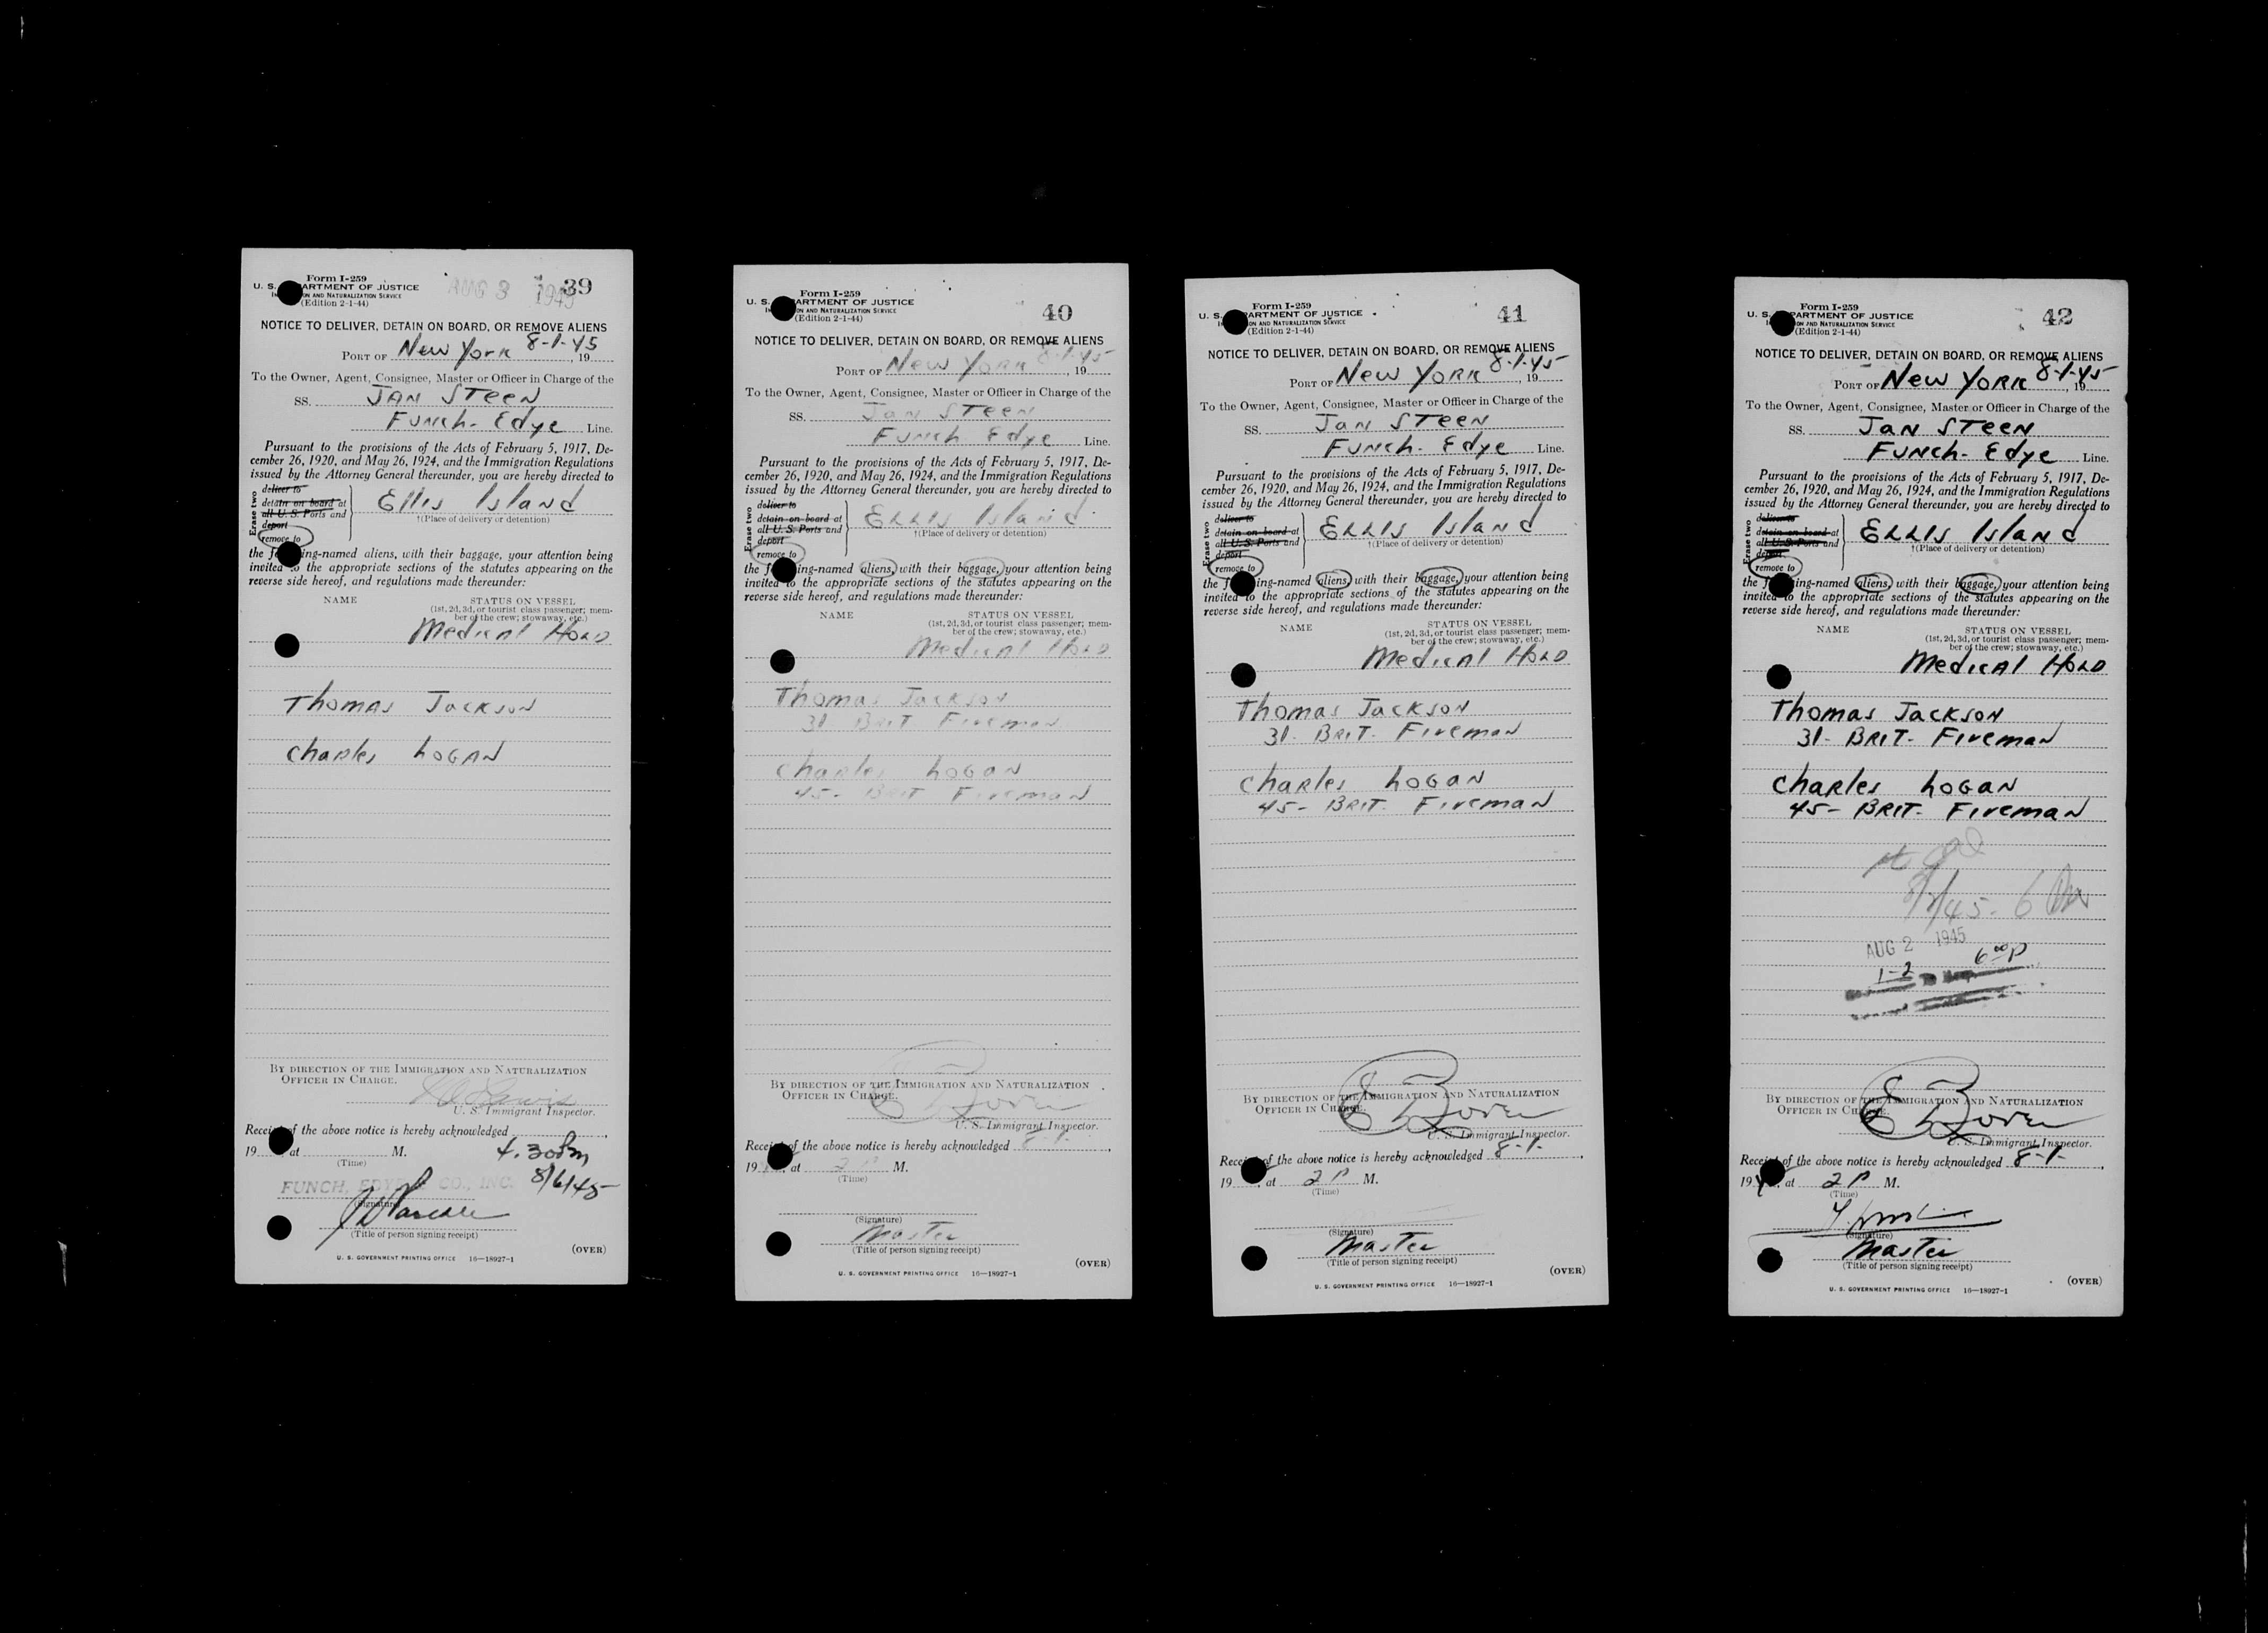 Form I-259
U. S. ARTMENT OF JUSTICE
ON AND NATURALIZATION SERVICE
(Edition 2-1-44)
AUG 3 1945
39
NOTICE TO DELIVER, DETAIN ON BOARD, OR REMOVE ALIENS
PORT OF New York 8-1-45, 19
To the Owner, Agent, Consignee, Master or Officer in Charge of the
SS. JAN STeeN
FUNch-Edye Line.
Pursuant to the provisions of the Acts of February 5, 1917, De-
cember 26, 1920, and May 26, 1924, and the Immigration Regulations
issued by the Attorney General thereunder, you are hereby directed to
Erase two
deliver to
detain on board at
all U. S. Ports and
deport
remove to
Ellis Island
†(Place of delivery or detention)
the f ing-named aliens, with their baggage, your attention being
invited to the appropriate sections of the statutes appearing on the
reverse side hereof, and regulations made thereunder:
NAME STATUS ON VESSEL
(1st, 2d, 3d, or tourist class passenger; mem-
ber of the crew; stowaway, etc.)
Medical Hold
Thomas Jackson
Charles Logan
BY DIRECTION OF THE IMMIGRATION AND NATURALIZATION
OFFICER IN CHARGE.
U. S. Immigrant Inspector.
Recei of the above notice is hereby acknowledged
19 at M.
(Time)
4.30 Pm
8/6/45
FUNCH, EDYE CO., INC.
(Signature)
(Title of person signing receipt)
(OVER)
U. S. GOVERNMENT PRINTING OFFICE 16—18927-1
Form I-259
U. S. ARTMENT OF JUSTICE
ON AND NATURALIZATION SERVICE
(Edition 2-1-44)
40
NOTICE TO DELIVER, DETAIN ON BOARD, OR REMOVE ALIENS
PORT OF New York 8-1-45, 19
To the Owner, Agent, Consignee, Master or Officer in Charge of the
SS. Jan STeen
FUNch Edye Line.
Pursuant to the provisions of the Acts of February 5, 1917, De-
cember 26, 1920, and May 26, 1924, and the Immigration Regulations
issued by the Attorney General thereunder, you are hereby directed to
Erase two
deliver to
detain on board at
all U. S. Ports and
deport
remove to
ELLIS Island
†(Place of delivery or detention)
the f ing-named aliens, with their baggage, your attention being
invited to the appropriate sections of the statutes appearing on the
reverse side hereof, and regulations made thereunder:
NAME STATUS ON VESSEL
(1st, 2d, 3d, or tourist class passenger; mem-
ber of the crew; stowaway, etc.)
Medical Hold
Thomas Jackson
31. BRIT Fireman
Charles Logan
45- BRIT Fireman
BY DIRECTION OF THE IMMIGRATION AND NATURALIZATION
OFFICER IN CHARGE.
U. S. Immigrant Inspector.
Recei of the above notice is hereby acknowledged 8-1-
19 , at 2 P M.
(Time)
(Signature)
Master
(Title of person signing receipt)
(OVER)
U. S. GOVERNMENT PRINTING OFFICE 16—18927-1
Form I-259
U. S. DEPARTMENT OF JUSTICE
ON AND NATURALIZATION SERVICE
(Edition 2-1-44)
41
NOTICE TO DELIVER, DETAIN ON BOARD, OR REMOVE ALIENS
PORT OF New YORK 8-1-45, 19
To the Owner, Agent, Consignee, Master or Officer in Charge of the
SS. Jan STeeN
FUNch-Edye Line.
Pursuant to the provisions of the Acts of February 5, 1917, De-
cember 26, 1920, and May 26, 1924, and the Immigration Regulations
issued by the Attorney General thereunder, you are hereby directed to
Erase two
deliver to
detain on board at
all U. S. Ports and
deport
remove to
ELLIS Island
†(Place of delivery or detention)
the f ing-named aliens, with their baggage, your attention being
invited to the appropriate sections of the statutes appearing on the
reverse side hereof, and regulations made thereunder:
NAME STATUS ON VESSEL
(1st, 2d, 3d, or tourist class passenger; mem-
ber of the crew; stowaway, etc.)
Medical Hold
Thomas Jackson
31. BRIT. Fireman
Charles Logan
45- BRIT. Fireman
BY DIRECTION OF THE IMMIGRATION AND NATURALIZATION
OFFICER IN CHARGE.
U. S. Immigrant Inspector.
Recei of the above notice is hereby acknowledged 8-1-
19 , at 2 P M.
(Time)
(Signature)
Master
(Title of person signing receipt)
(OVER)
U. S. GOVERNMENT PRINTING OFFICE 16—18927-1
Form I-259
U. S. PARTMENT OF JUSTICE
ON AND NATURALIZATION SERVICE
(Edition 2-1-44)
42
NOTICE TO DELIVER, DETAIN ON BOARD, OR REMOVE ALIENS
PORT OF New YORK 8-1-45, 19
To the Owner, Agent, Consignee, Master or Officer in Charge of the
SS. Jan STeeN
FUNch-Edye Line.
Pursuant to the provisions of the Acts of February 5, 1917, De-
cember 26, 1920, and May 26, 1924, and the Immigration Regulations
issued by the Attorney General thereunder, you are hereby directed to
Erase two
deliver to
detain on board at
all U. S. Ports and
deport
remove to
ELLIS Island
†(Place of delivery or detention)
the f ing-named aliens, with their baggage, your attention being
invited to the appropriate sections of the statutes appearing on the
reverse side hereof, and regulations made thereunder:
NAME STATUS ON VESSEL
(1st, 2d, 3d, or tourist class passenger; mem-
ber of the crew; stowaway, etc.)
Medical Hold
Thomas Jackson
31- BRIT- Fireman
Charles Logan
45- BRIT- Fireman
8/1/45. 6 Pm
AUG 2 1945
1-2 6 00 P
BY DIRECTION OF THE IMMIGRATION AND NATURALIZATION
OFFICER IN CHARGE.
U. S. Immigrant Inspector.
Recei of the above notice is hereby acknowledged 8-1-
19 , at 2 P M.
(Time)
(Signature)
Master
(Title of person signing receipt)
(OVER)
U. S. GOVERNMENT PRINTING OFFICE 16—18927-1